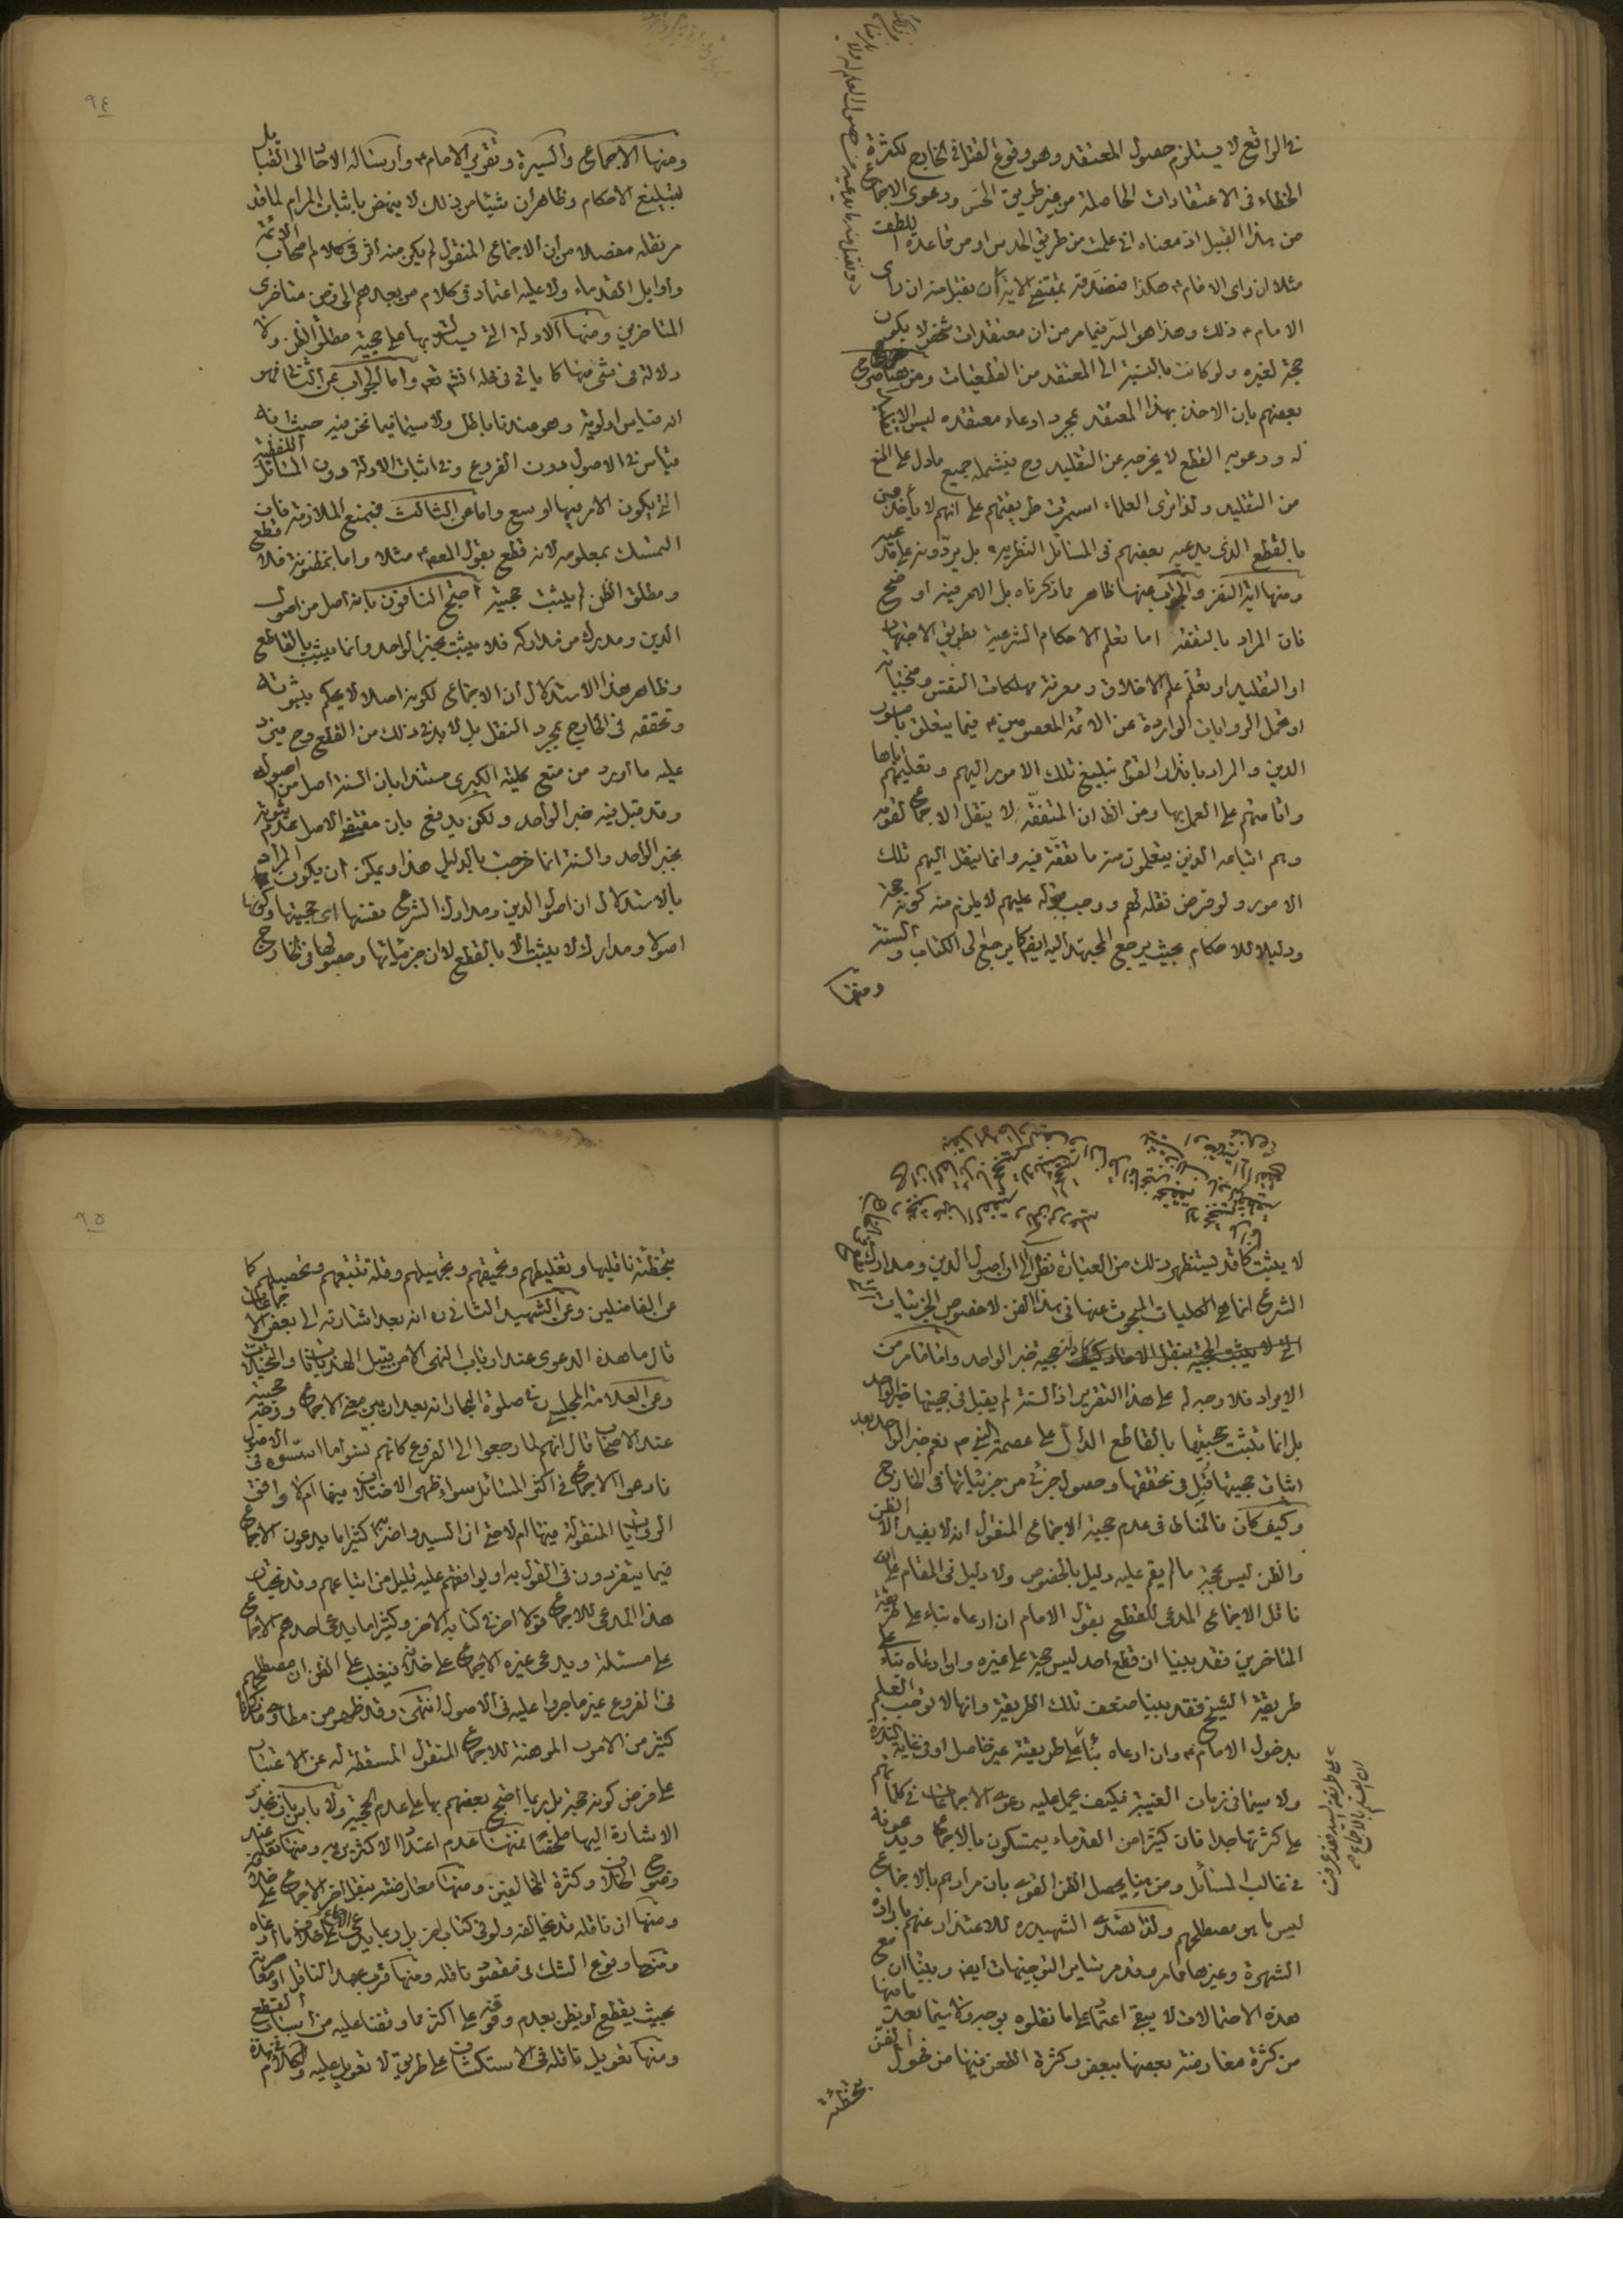 في الواقع لا يستلزم حصول المعتقد وهو وقوع القتل في الخارج لكثرة
الخطاء في الاعتقادات الحاصلة من غير طريق الحس ودعوى الاجماع
من هذا القبيل اذ معناه اني علمت من طريق الحدس او من قاعدة اللطف
مثلا ان راى الامام ع هكذا فتصديقه بمقتضى الاية ان يقبل منه ان راى
الامام ع ذلك وهذا هو السر فيما مر من ان معتقدات شخص لا يكون
حجة لغيره ولو كانت بالنسبة الى المعتقد من القطعيات ومن هنا صرح
بعضهم بان الاخذ بهذا المعتقد بمجرد ادعاء معتقده ليس الا تقليدا
له ودعويه القطع لا يخرجه عن التقليد وح فيشمله جميع ما دل على المنع
من التقليد ولذا ترى العلماء استمرت طريقتهم على انهم لا يأخذون
بالقطع الذي يدعيه بعضهم في المسائل النظرية بل يردونه على مدعيه
ومنها اية النفر والجواب عنها ظاهر مما ذكرناه بل الامر فيه اوضح
فان المراد بالتفقه اما تعلم الاحكام الشرعية بطريق الاجتهاد
او التقليد او تعلم علم الاخلاق ومعرفة مهلكات النفس ومنجياته
او تحمل الروايات الواردة عن الائمة المعصومين ع فيما يتعلق بامور
الدين والمراد بانذار القوم تبليغ تلك الامور اليهم وتعليمهم اياها
واقامتهم على العمل بها ومن الظ ان المتفقه لا ينقل الاجماع لقومه
وهم اتباعه الذين يتعلمون منه ما تفقه فيه وانما ينقل اليهم تلك
الامور ولو فرض نقله لهم ووجب قبوله عليهم لا يلزم منه كونه حجة
ودليلا للاحكام بحيث يرجع المجتهد اليه ايض كما يرجع الى الكتاب والسنة
ومنها
٩٤
ومنها الاجماع والسيرة وتقرير الامام ع وارساله الاحاد الى القبايل
لتبليغ الاحكام وظاهر ان شيئا من ذلك لا ينهض باثبات المرام لما قد
مر نقله مفصلا من ان الاجماع المنقول لم يكن منه اثر في كلام اصحاب الائمة
واوايل القدماء ولا عليه اعتماد في كلام من بعدهم الى زمن متاخرى
المتاخرين ومنها الادلة التي يستدل بها على حجية مطلق الظن ولا
دلالة في شئ منها كما ياتي في محله انش تع واما الجواب عن الثاني فهو
انه قياس اولوية وهو عندنا باطل ولا سيما فيما نحن فيه حيث انه
قياس في الاصول دون الفروع وفي اثبات الادلة دون المسائل اللفظية
التي يكون الامر فيها اوسع واما عن الثالث فبمنع الملازمة فان
التمسك بمعلومه لانه قطع بقول المعصوم مثلا واما بمظنونه فلا قطع
ومطلق الظن لم يثبت حجيته احتج النافون بانه اصل من اصول
الدين ومدرك من مداركه فلا يثبت بخبر الواحد وانما يثبت بالقاطع
وظاهر هذا الاستدلال ان الاجماع لكونه اصلا لا يحكم بثبوته
وتحققه في الخارج بمجرد النقل بل لا بد في ذلك من القطع وح فيرد
عليه ما اورد من منع كلية الكبرى مستندا بان السنة اصل من اصوله
وقد قبل فيه خبر الواحد ولكن يدفع بان مقتضى الاصل عدم ثبوته
بخبر الواحد والسنة انما خرجت بالدليل هذا ويمكن ان يكون المراد
بالاستدلال ان اصول الدين ومدارك الشرع بعينها اي حجيتها وكونها
اصولا ومدارك لا يثبت الا بالقطع لا ان جزئياتها وحصولها في الخارج
لا يثبت كما قد يستظهر ذلك من العبارة نظرا الى ان اصول الدين ومدارك
الشرع انما هي الكليات المبحوث عنها في هذا الفن لا خصوص الجزئيات
الايراد فلا وجه له على هذا التقرير اذ السنة لم يقبل في حجيتها خبر الواحد
بل انما يثبت حجيتها بالقاطع الدال على عصمة النبي ص نعم خبر الواحد بعد
اثبات حجيتها قبل في تحققها وحصول جزئي من جزئياتها في الخارج
وكيف كان فالمناط في عدم حجية الاجماع المنقول انه لا يفيد الا الظن
والظن ليس بحجة ما لم يقم عليه دليل بالخصوص ولا دليل في المقام فان
ناقل الاجماع المدعي للقطع بقول الامام ان ادعاه بناء على طريقة
المتاخرين فقد بينا ان قطع احد ليس حجة على غيره وان ادعاه بناء على
طريقة الشيخ فقد بينا ضعف تلك الطريقة وانها لا توجب العلم
بدخول الامام ع وان ادعاه بناء على طريقة غير حاصل او في غاية الندرة
ولا سيما في زمان الغيبة فكيف يحمل عليه دعوى الاجماعات في كلماتهم
على كثرتها جدا فان كثيرا من القدماء يتمسكون بالاجماع ويدعونه
في غالب المسائل ومن هنا يحصل الظن القوي بان مرادهم بالاجماع
ليس ما هو مصطلحهم ولذا تصدى الشهيد ره للاعتذار عنهم بارادة
الشهرة وغيرها مما مر وقد مر بنا ساير التوجيهات ايضا وبينا ان مع
هذه الاحتمالات لا يبقى اعتماد على ما نقلوه بوجه ولا سيما بعد ما فيها
من كثرة معارضة بعضها ببعض وكثرة الطعن فيها من فحول الفن
بتخطئة
٩٥
بتخطئة ناقليها وتغليطهم وتحميقهم وتجهيلهم وقلة تتبعهم وتحصيلهم كما
عن الفاضلين وعن الشهيد الثاني ره انه بعد اشارته الى بعض الاجماعات
قال ما هذه الدعوى عند ارباب النهى الا من قبيل الهذيانات والخيالات
وعن العلامة المجلسي ره في صلوة البحار انه بعد ان بين معنى الاجماع ووجه حجيته
عند الاصحاب قال انهم لما رجعوا الى الفروع كانهم نسوا ما اسسوه في الاصول
فادعوا الاجماع في اكثر المسائل سواء ظهر الاختلاف فيها ام لا وافق
الروايات المنقولة فيها ام لا حتى ان السيد واضرابه كثيرا ما يدعون الاجماع
فيما يتفردون في القول به او يوافقهم عليه قليل من اتباعهم وقد يختار
هذا المدعي للاجماع قولا اخر في كتابه الاخر وكثيرا ما يدعي احدهم الاجماع
على مسئلة ويدعي غيره الاجماع على خلافه فيغلب على الظن ان مصطلحهم
في الفروع غير ما جروا عليه في الاصول انتهى وقد ظهر من مطاوي ما ذكرنا
كثير من الامور الموهنة للاجماع المنقول المسقطة له عن الاعتبار
على فرض كونه حجة بل ربما احتج بعضهم بها على عدم الحجية ولا باس بان نجدد
الاشارة اليها ملخصا فمنها عدم اعتداد الاكثرين به ومنها نقله عند
وضوح الخلاف وكثرة المخالفين ومنها معارضته بنقل اخر للاجماع على خلافه
ومنها ان ناقله قد يخالفه ولو في كتاب اخر بل ربما يدعي الاجماع على خلاف ما ادعاه
ومنها وقوع الشك في مقصود ناقله ومنها قرب عهد الناقل او معاصرته
بحيث يقطع او يظن بعدم وقوفه على اكثر مما وقفنا عليه من اسباب القطع
ومنها تعويل ناقله في الاستكشاف على طريق لا تعويل عليه والكلام في هذه